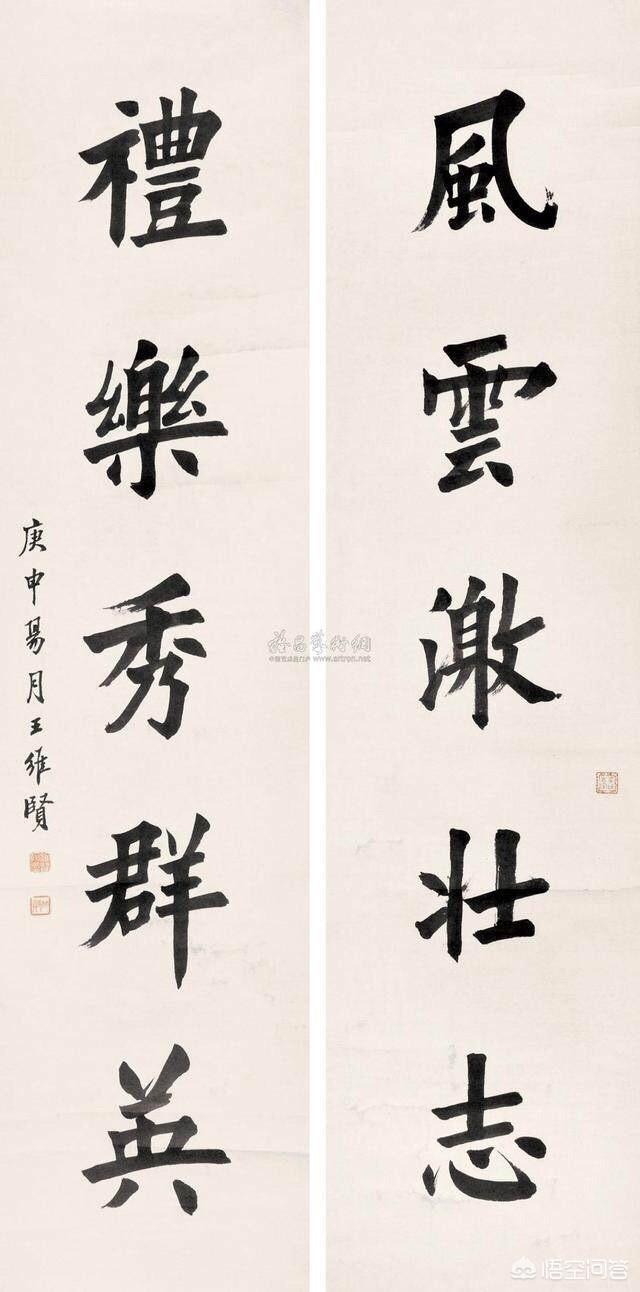 風雲激壯志
禮樂秀群英
庚申昜月王維賢
雅昌藝術網
www.artron.net
悟空问答